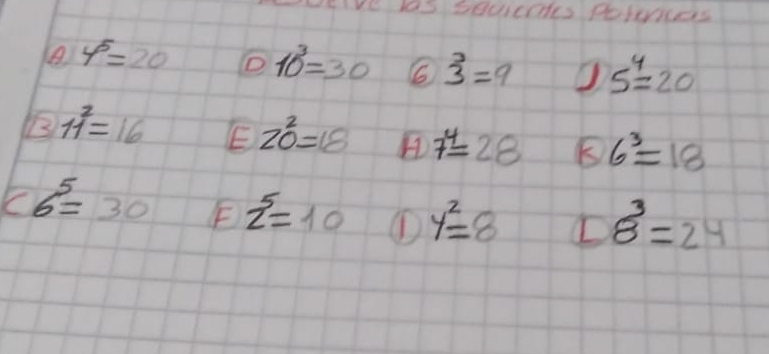 los siguientes Potencias
A 4⁵=20 D 10³=30 G 3³=9 J 5⁴=20
B 11²=16 E 20²=18 H 7⁴=28 K 6³=18
C 6⁵=30 F 2⁵=10 I 4²=8 L 8³=24